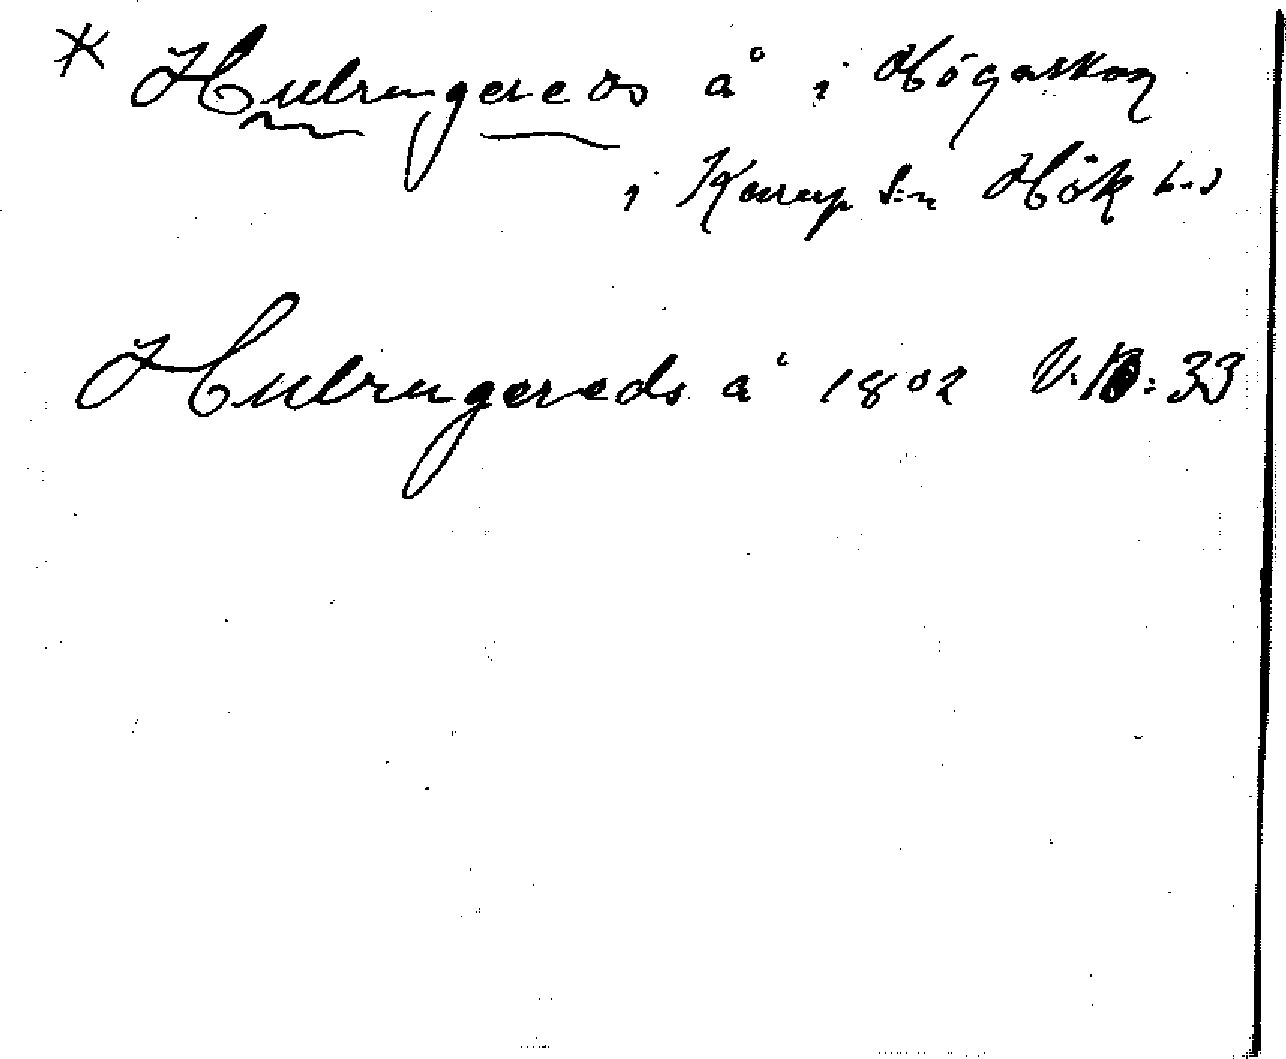 * Hulrugereds å i Högaskog
i Karup s:n Hök h-d
Hulrugereds å 1802 V. B: 33